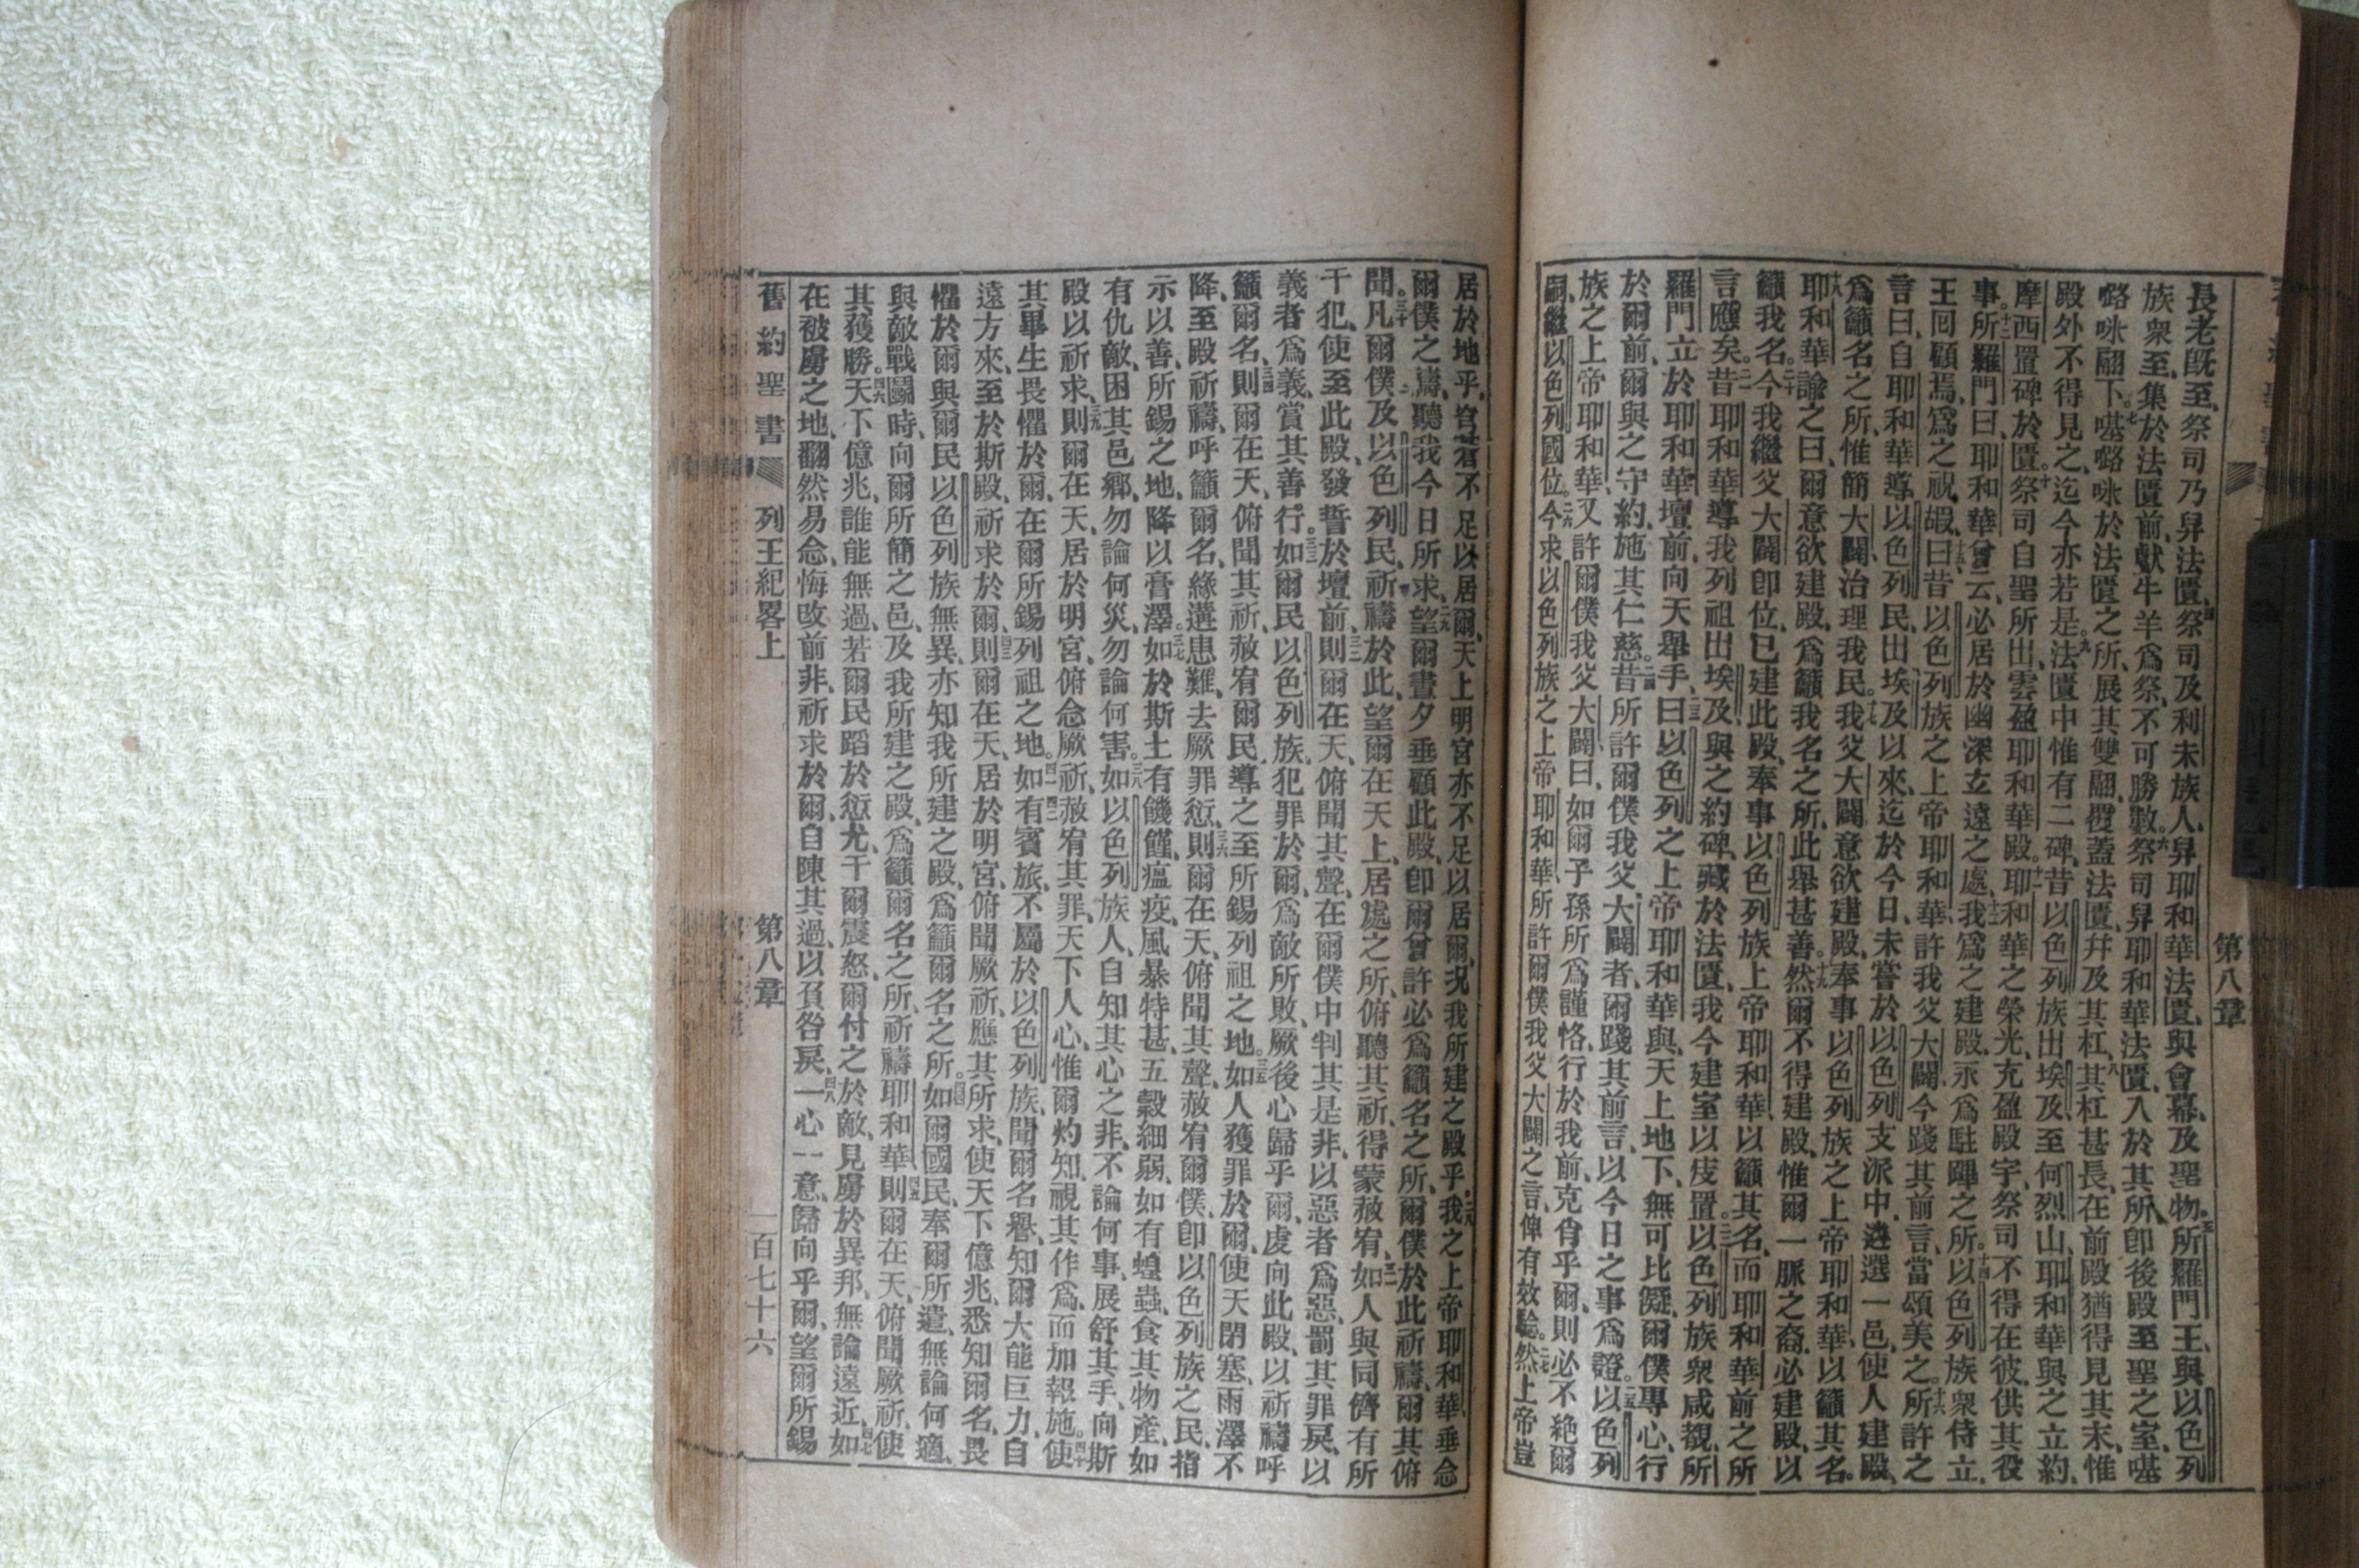 長老旣至、祭司乃舁法匱、四祭司及利未族人、舁耶和華法匱、與會幕、及聖物。五所羅門王、與以色列
族衆至、集於法匱前、獻牛羊爲祭、不可勝數。六祭司舁耶和華法匱、入於其所、卽後殿至聖之室、𠼻
𡀔咪翮下。七𠼻𡀔咪於法匱之所、展其雙翮、覆蓋法匱、幷及其杠、八其杠甚長、在前殿猶得見其末、惟
殿外不得見之、迄今亦若是。九法匱中惟有二碑、昔以色列族出埃及、至何烈山、耶和華與之立約、
摩西置碑於匱。十祭司自聖所出、雲盈耶和華殿。十一耶和華之榮光、充盈殿宇、祭司不得在彼、供其役
事。十二所羅門曰、耶和華曾云、必居於幽深玄遠之處、十三我爲之建殿、永爲駐蹕之所。十四以色列族衆侍立、
王回顧焉、爲之祝嘏、十五曰、昔以色列族之上帝耶和華、許我父大闢、今踐其前言、當頌美之。十六所許之
言曰、自耶和華導以色列民出埃及以來、迄於今日、未嘗於以色列支派中、遴選一邑、使人建殿、
爲籲名之所、惟簡大闢治理我民。十七我父大闢意欲建殿、奉事以色列族之上帝耶和華、以籲其名。
十八耶和華諭之曰、爾意欲建殿、爲籲我名之所、此舉甚善、十九然爾不得建殿、惟爾一脈之裔、必建殿、以
籲我名。二十今我繼父大闢卽位、已建此殿、奉事以色列族上帝耶和華、以籲其名、而耶和華前之所
言應矣。二一昔耶和華導我列祖出埃及、與之約碑、藏於法匱、我今建室以庋置。二二以色列族衆咸覩、所
羅門立於耶和華壇前、向天舉手、二三曰、以色列之上帝耶和華與、天上地下、無可比儗、爾僕專心、行
於爾前、爾與之守約、施其仁慈。二四昔所許爾僕我父、大闢者、爾踐其前言、以今日之事爲證。二五以色列
族之上帝耶和華、又許爾僕我父大闢曰、如爾子孫所爲謹恪、行於我前、克肖乎爾、則必不絕爾
嗣、繼以色列國位。二六今求以色列族之上帝耶和華、所許爾僕我父大闢之言、俾有效驗。二七然上帝豈
第八章
居於地乎、穹蒼不足以居爾、天上明宮亦不足以居爾、況我所建之殿乎。二八我之上帝耶和華、垂念
爾僕之禱、聽我今日所求、二九望爾晝夕垂顧此殿、卽爾曾許必爲籲名之所、爾僕於此祈禱、爾其俯
聞。三十凡爾僕及以色列民、祈禱於此、望爾在天上、居處之所、俯聽其祈、得蒙赦宥、三一如人與同儕有所
干犯、使至此殿、發誓於壇前、三二則爾在天、俯聞其聲、在爾僕中判其是非、以惡者爲惡、罰其罪戾、以
義者爲義、賞其善行。三三如爾民、以色列族、犯罪於爾、爲敵所敗、厥後心歸乎爾、虔向此殿、以祈禱呼
籲爾名、三四則爾在天、俯聞其祈、赦宥爾民、導之至所錫列祖之地。三五如人獲罪於爾、使天閉塞、雨澤不
降、至殿祈禱、呼籲爾名、緣遘患難、去厥罪愆、三六則爾在天、俯聞其聲、赦宥爾僕、卽以色列族之民、指
示以善、所錫之地、降以膏澤。三七如於斯土有饑饉、瘟疫、風暴特甚、五穀細弱、如有蝗蟲、食其物產、如
有仇敵、困其邑鄉、勿論何災、勿論何害。三八如以色列族人、自知其心之非、不論何事、展舒其手、向斯
殿以祈求、三九則爾在天、居於明宮、俯念厥祈、赦宥其罪、天下人心、惟爾灼知、視其作爲、而加報施。四十使
其畢生畏懼於爾、在爾所錫列祖之地。四一四二如有賓旅、不屬於以色列族、聞爾名譽、知爾大能巨力、自
遠方來、至於斯殿、祈求於爾、四三則爾在天、居於明宮、俯聞厥祈、應其所求、使天下億兆、悉知爾名、畏
懼於爾、與爾民以色列族無異、亦知我所建之殿、爲籲爾名之所。四四如爾國民、奉爾所遣、無論何適、
與敵戰鬬時、向爾所簡之邑、及我所建之殿、爲籲爾名之所、祈禱耶和華、四五則爾在天、俯聞厥祈、使
其獲勝。四六天下億兆、誰能無過、若爾民蹈於愆尤、干爾震怒、爾付之於敵、見虜於異邦、無論遠近、四七如
在被虜之地、翻然易念、悔改前非、祈求於爾、自陳其過、以負咎戾、四八一心一意、歸向乎爾、望爾所錫
舊約聖書 列王紀畧上 第八章 一百七十六